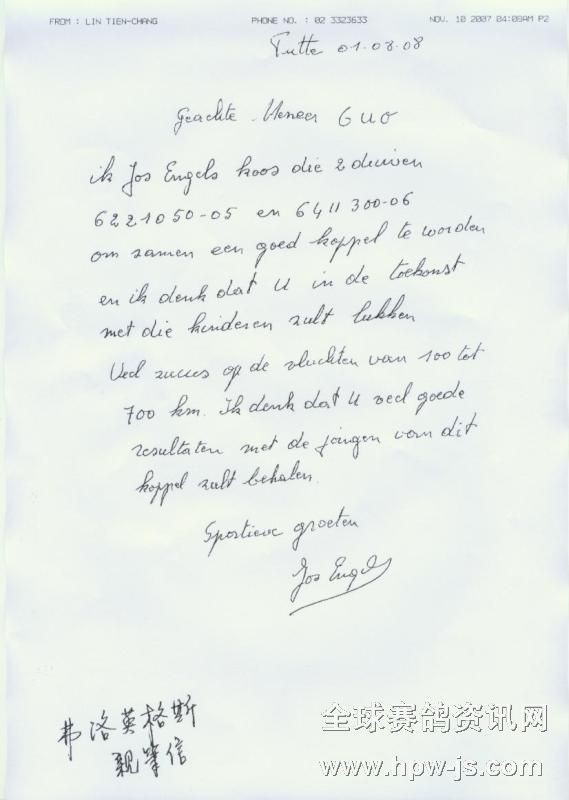 FROM : LIN TIEN-CHANG PHONE NO. : 02 3323633 NOV. 10 2007 04:09AM P2
Putte 01-08-08
Geachte Meneer GUO
ik Jos Engels koos die 2 duiven
6221050-05 en 6411300-06
om samen een goed koppel te worden
en ik denk dat U in de toekomst
met die kinderen zult lukken
Veel succes op de vluchten van 100 tot
700 km. Ik denk dat U veel goede
resultaten met de jongen van dit
koppel zult behalen.
Sportieve groeten
Jos Engels
弗洛英格斯
親筆信
全球赛鸽资讯网
www.hpw-js.com